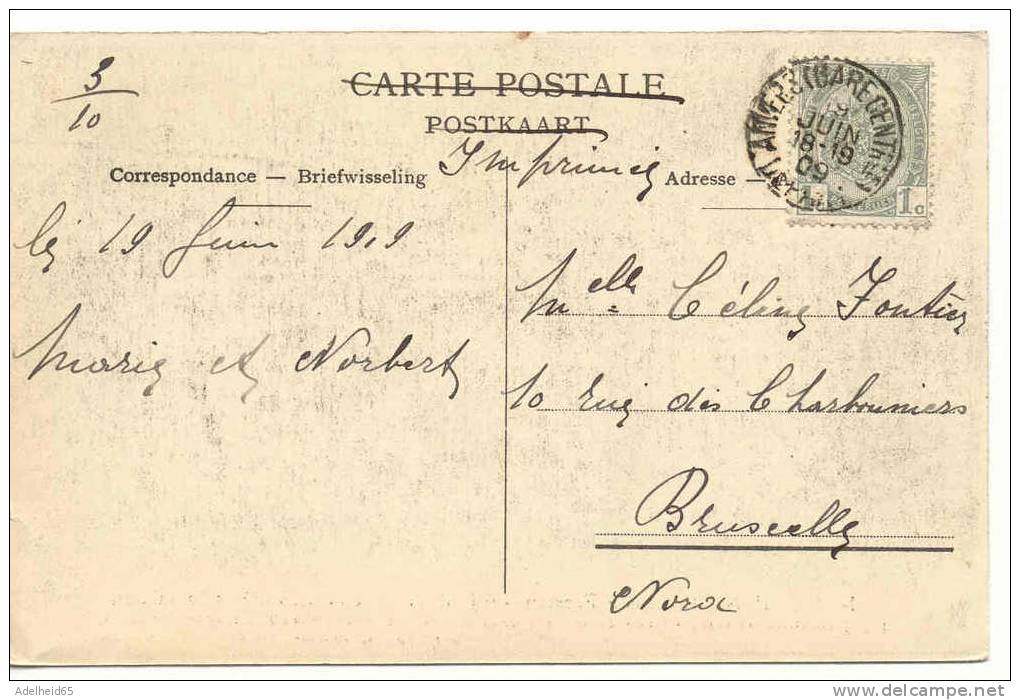 3
10
CARTE POSTALE
POSTKAART
Imprimé
Correspondance — Briefwisseling
Adresse —
ANVERS (GARE CENTRALE)
19
JUIN
18-19
09
1 c
le 19 Juin 1909
Marie et Norbert
Melle Céline Fontier
10 Rue des Charbonniers
Bruxelles
Nord
Adelheid65
http://www.delcampe.net